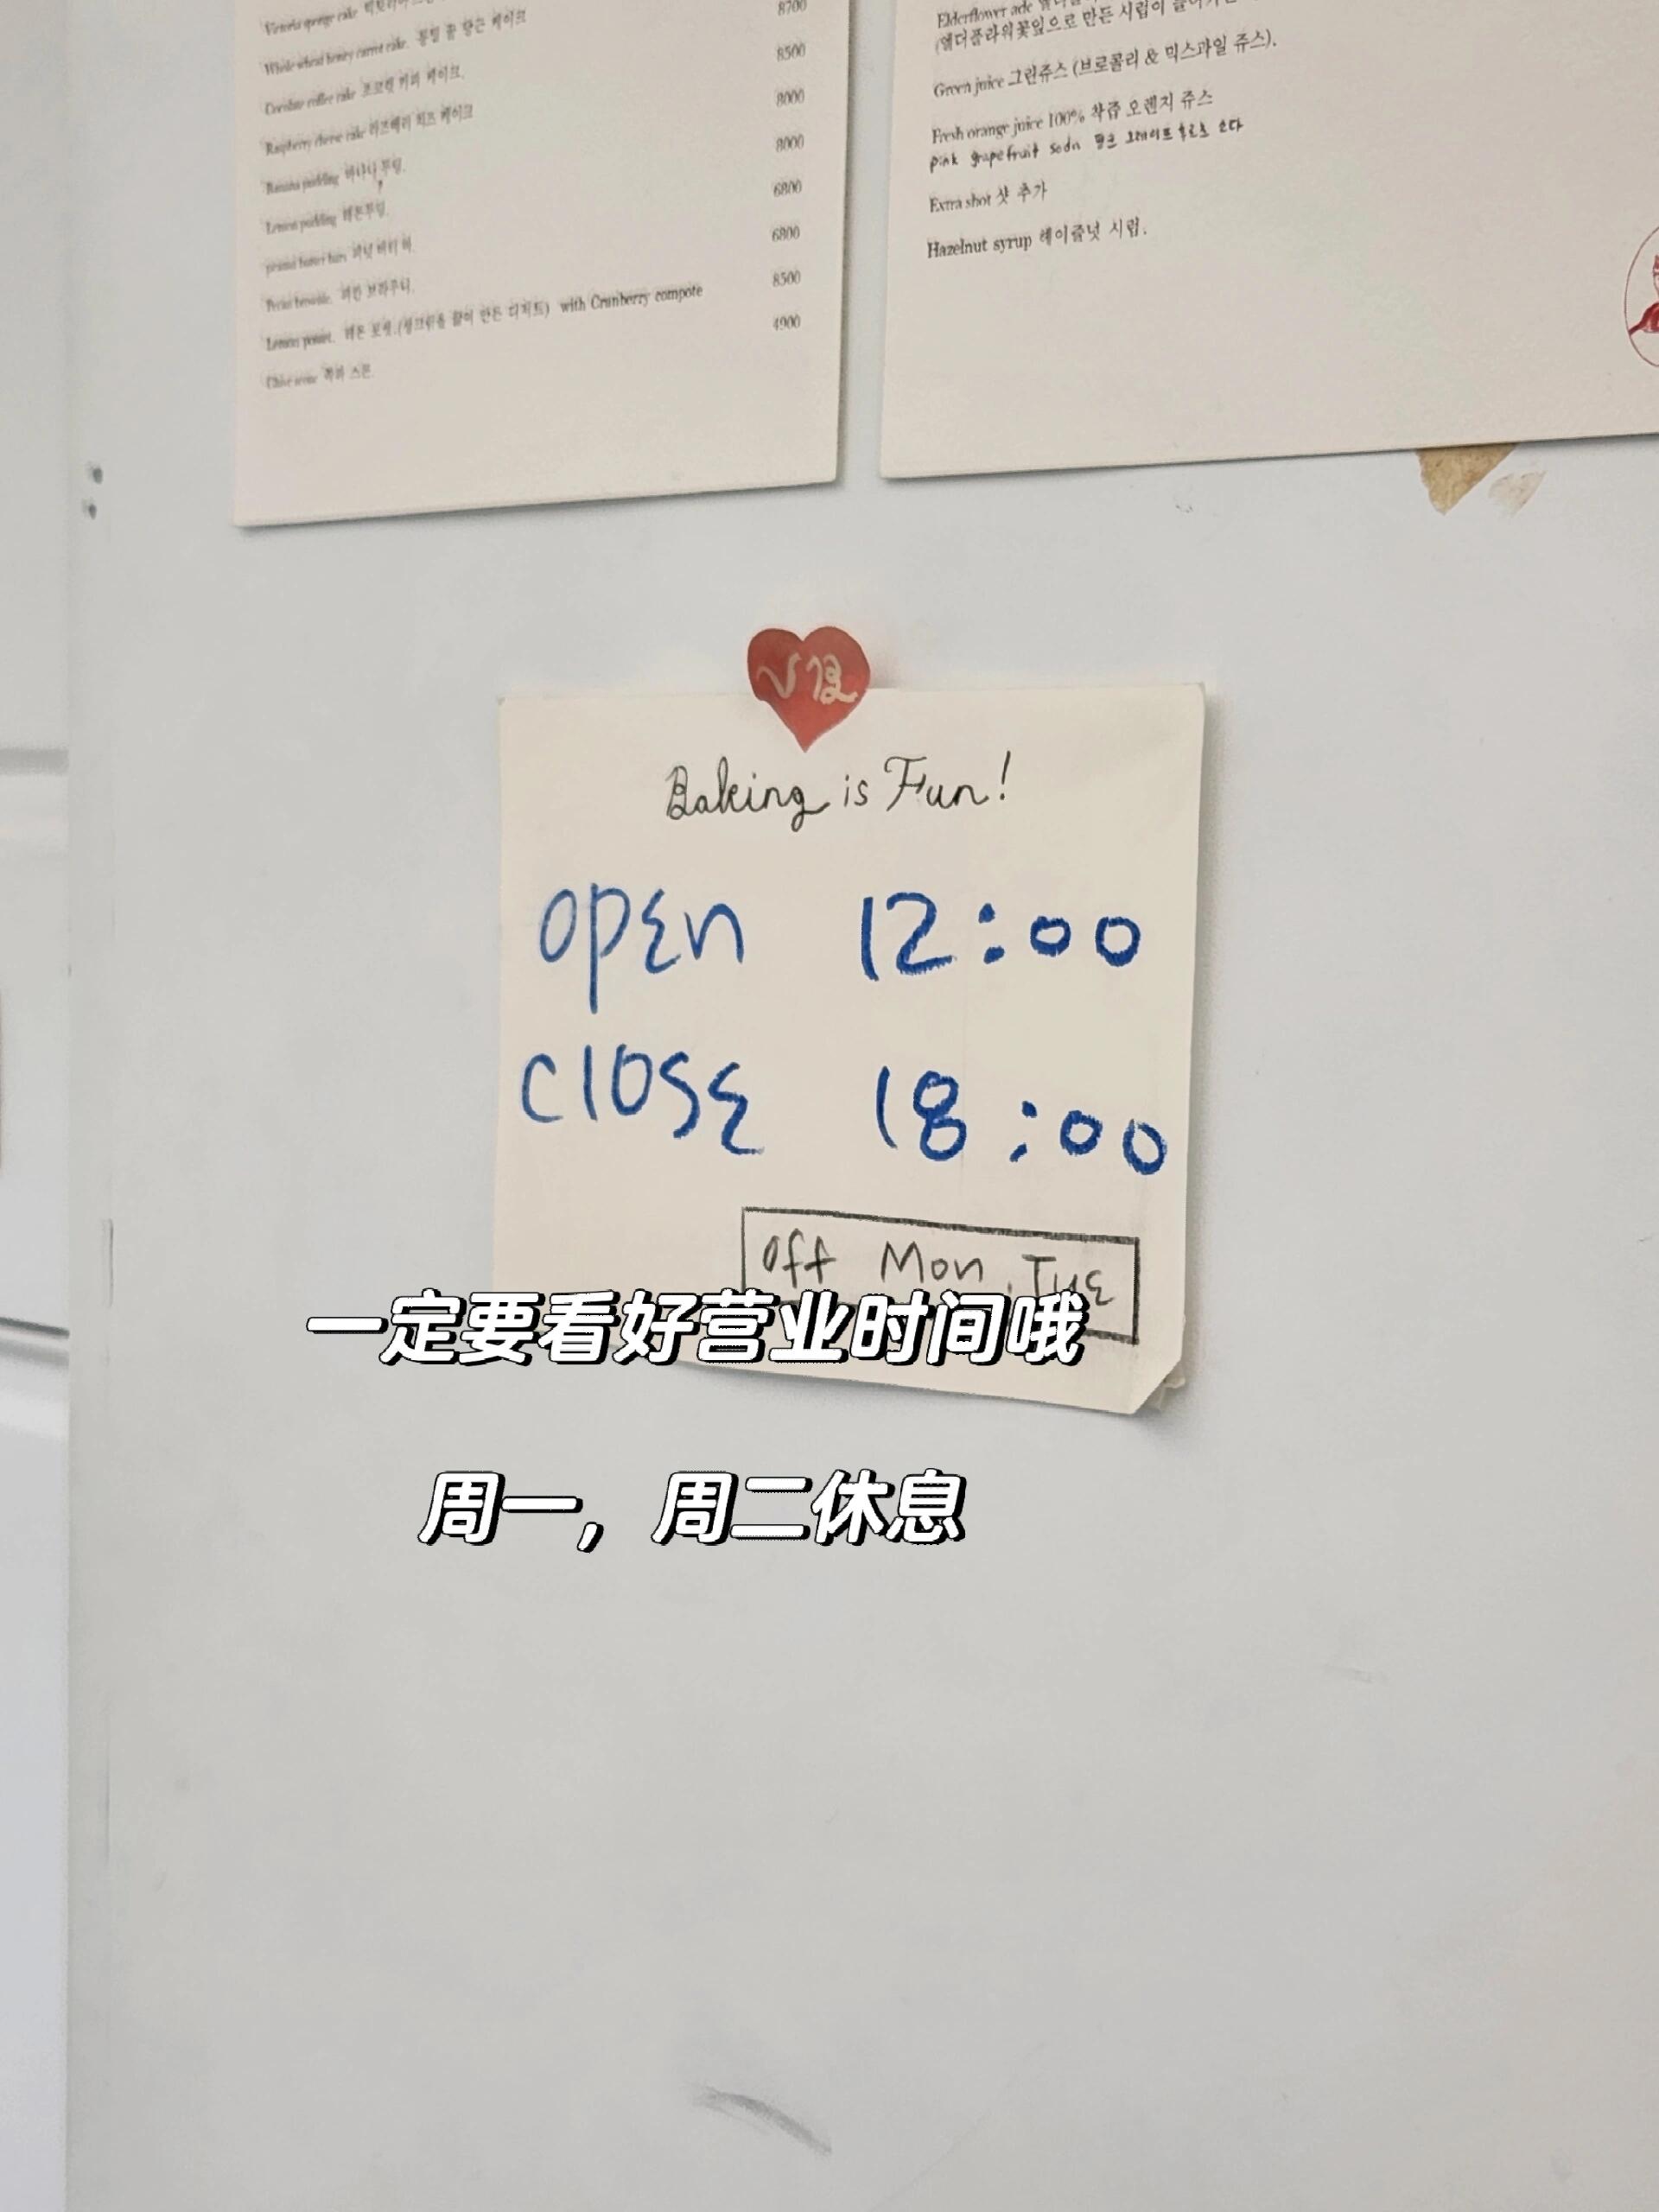 Victoria sponge cake
8700
Whole wheat honey carrot cake. 통밀 꿀 당근 케이크
8500
Chocolate coffee cake 초코렛 커피 케이크.
8000
Raspberry cheese cake 라즈베리 치즈 케이크
8000
Banana pudding 바나나 푸딩.
6800
Lemon pudding 레몬푸딩.
6800
peanut butter bars 피넛 버터 바.
8500
Pecan brownie. 피칸 브라우니.
4900
Lemon posset. 레몬 포셋.(생크림을 끓여 만든 디저트) with Cranberry compote
스콘.
Elderflower ade
(엘더플라워꽃잎으로 만든 시럽이
Green juice 그린쥬스 (브로콜리 & 믹스과일 쥬스).
Fresh orange juice 100% 착즙 오렌지 쥬스
pink grapefruit soda 핑크 그레이프후르츠 소다
Extra shot 샷 추가
Hazelnut syrup 헤이즐넛 시럽.
Baking is Fun!
open 12:00
close 18:00
off Mon, Tue
一定要看好营业时间哦
周一，周二休息